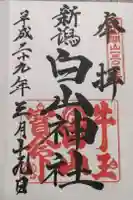 奉拝
新潟
白山神社
平成二十九年三月十九日
牛玉